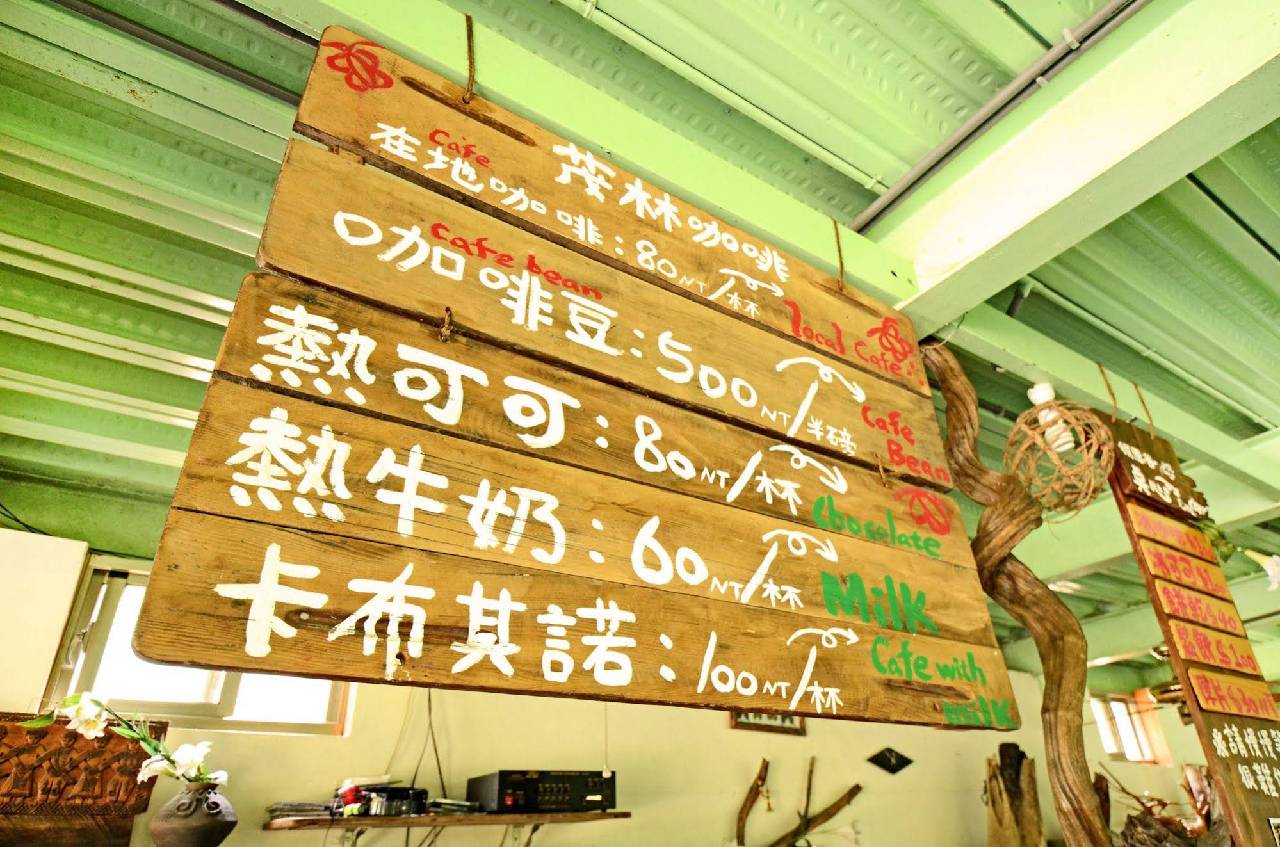 茂林咖啡
Cafe
在地咖啡：80NT/杯 local Cafe
cafe bean
咖啡豆：500NT/半磅 Cafe Bean
熱可可：80NT/杯 Chocolate
熱牛奶：60NT/杯 Milk
卡布其諾：100NT/杯 Cafe with milk